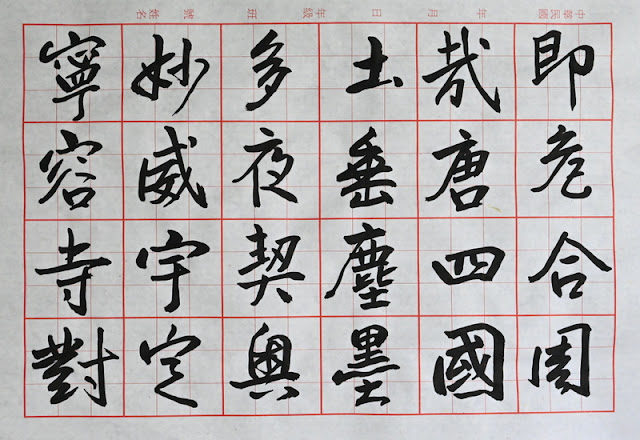 中華民國 年 月 日 年級 班 號 姓名
即危合周
哉唐四國
土垂塵墨
多夜契奧
妙威宇定
寧容寺對